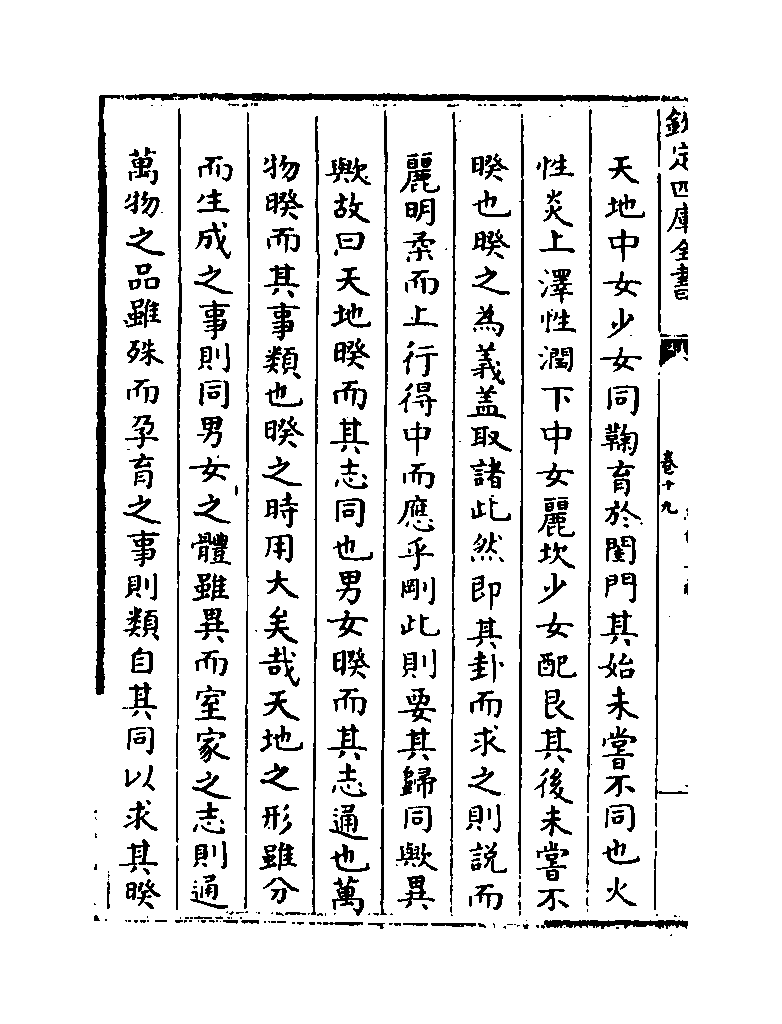 欽定四庫全書
卷十九
天地中女少女同鞠育於閨門其始未嘗不同也火
性炎上澤性潤下中女麗坎少女配艮其後未嘗不
暌也暌之為義蓋取諸此然即其卦而求之則説而
麗明柔而上行得中而應乎剛此則要其歸同歟異
歟故曰天地暌而其志同也男女暌而其志通也萬
物暌而其事類也暌之時用大矣哉天地之形雖分
而生成之事則同男女之體雖異而室家之志則通
萬物之品雖殊而孕育之事則類自其同以求其暌